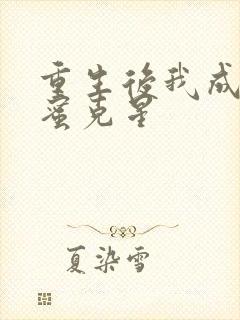 重生後我成
蜜克星
夏染雪